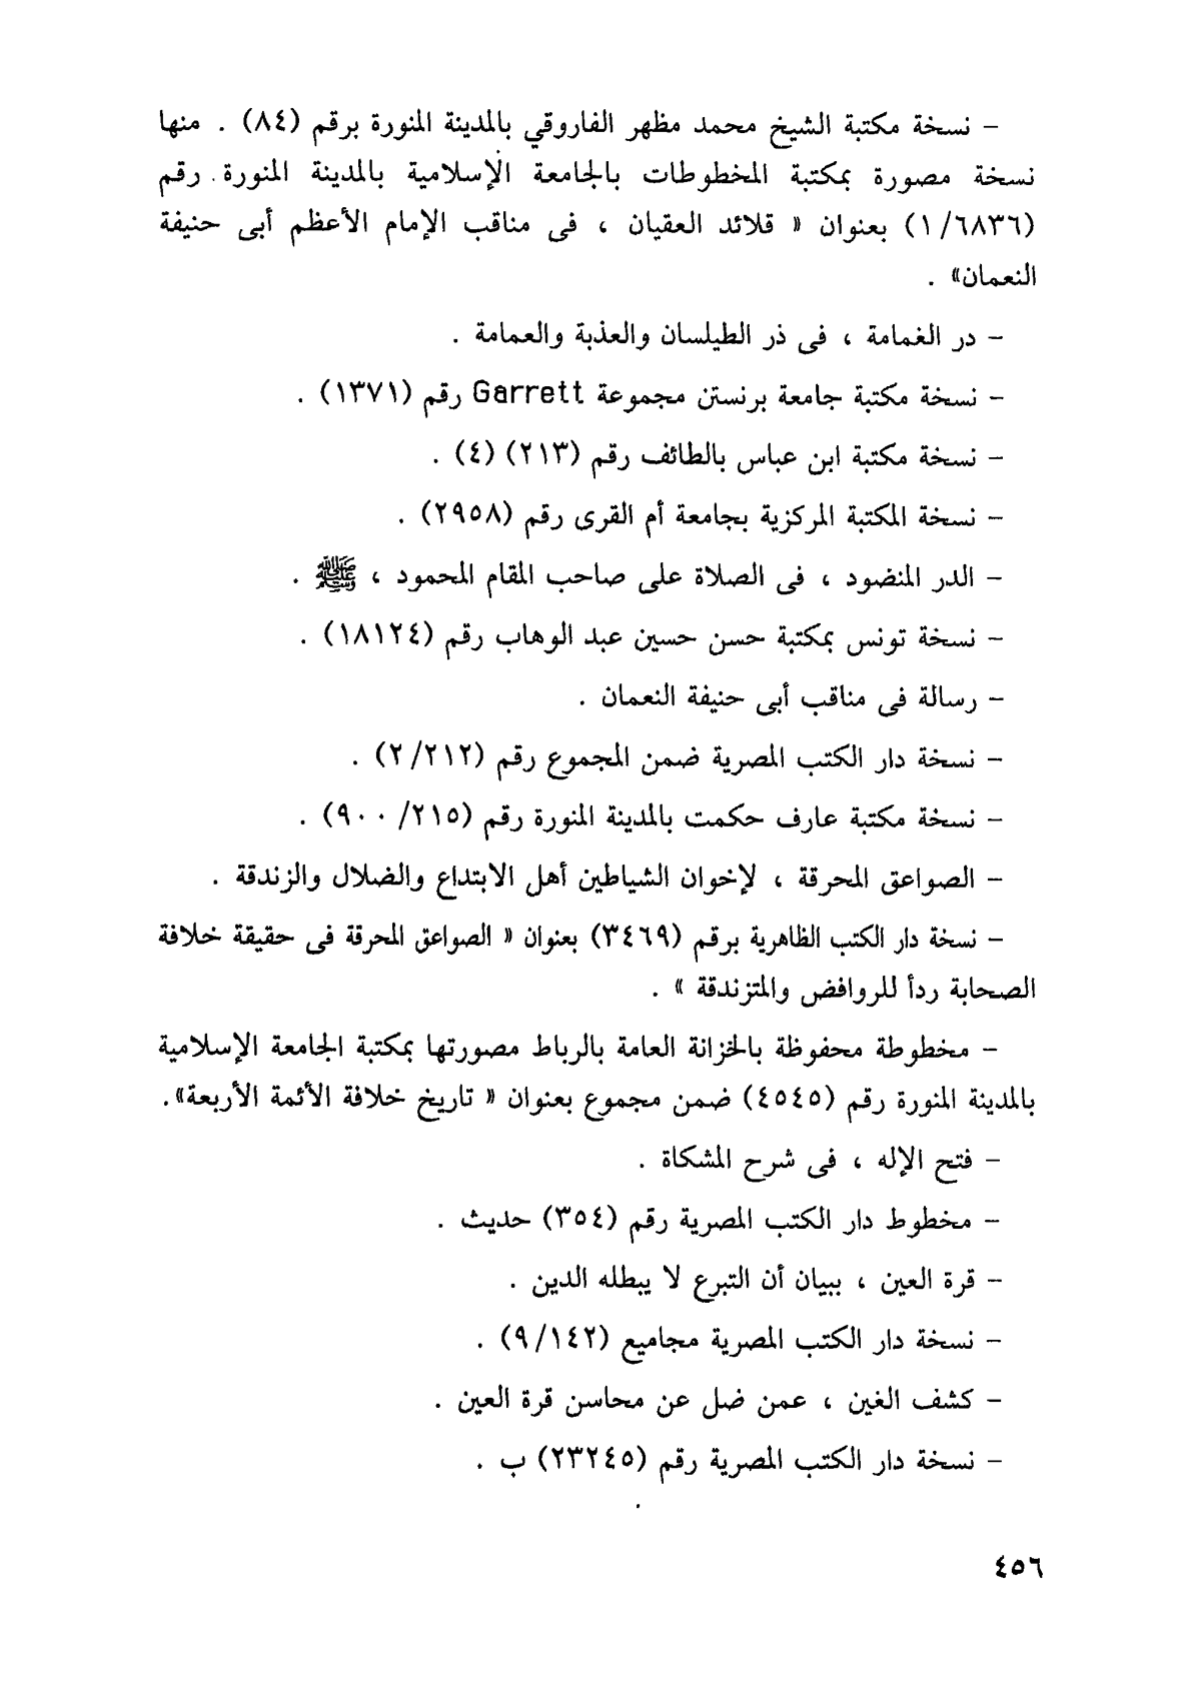 – نسخة مكتبة الشيخ محمد مظهر الفاروقي بالمدينة المنورة برقم (٨٤) . منها
نسخة مصورة بمكتبة المخطوطات بالجامعة الإسلامية بالمدينة المنورة رقم
(١/٦٨٣٦) بعنوان « قلائد العقيان ، فى مناقب الإمام الأعظم أبى حنيفة
النعمان» .
– در الغمامة ، فى ذر الطيلسان والعذبة والعمامة .
– نسخة مكتبة جامعة برنستن مجموعة Garrett رقم (١٣٧١) .
– نسخة مكتبة ابن عباس بالطائف رقم (٢١٣) (٤) .
– نسخة المكتبة المركزية بجامعة أم القرى رقم (٢٩٥٨) .
– الدر المنضود ، فى الصلاة على صاحب المقام المحمود ، ﷺ .
– نسخة تونس بمكتبة حسن حسين عبد الوهاب رقم (١٨١٢٤) .
– رسالة فى مناقب أبى حنيفة النعمان .
– نسخة دار الكتب المصرية ضمن المجموع رقم (٢/٢١٢) .
– نسخة مكتبة عارف حكمت بالمدينة المنورة رقم (٩٠٠/٢١٥) .
– الصواعق المحرقة ، لإخوان الشياطين أهل الابتداع والضلال والزندقة .
– نسخة دار الكتب الظاهرية برقم (٣٤٦٩) بعنوان « الصواعق المحرقة فى حقيقة خلافة
الصحابة ردأ للروافض والمتزندقة » .
– مخطوطة محفوظة بالخزانة العامة بالرباط مصورتها بمكتبة الجامعة الإسلامية
بالمدينة المنورة رقم (٤٥٤٥) ضمن مجموع بعنوان « تاريخ خلافة الأئمة الأربعة».
– فتح الإله ، فى شرح المشكاة .
– مخطوط دار الكتب المصرية رقم (٣٥٤) حديث .
– قرة العين ، ببيان أن التبرع لا يبطله الدين .
– نسخة دار الكتب المصرية مجاميع (٩/١٤٢) .
– كشف الغين ، عمن ضل عن محاسن قرة العين .
– نسخة دار الكتب المصرية رقم (٢٣٢٤٥) ب .
٤٥٦